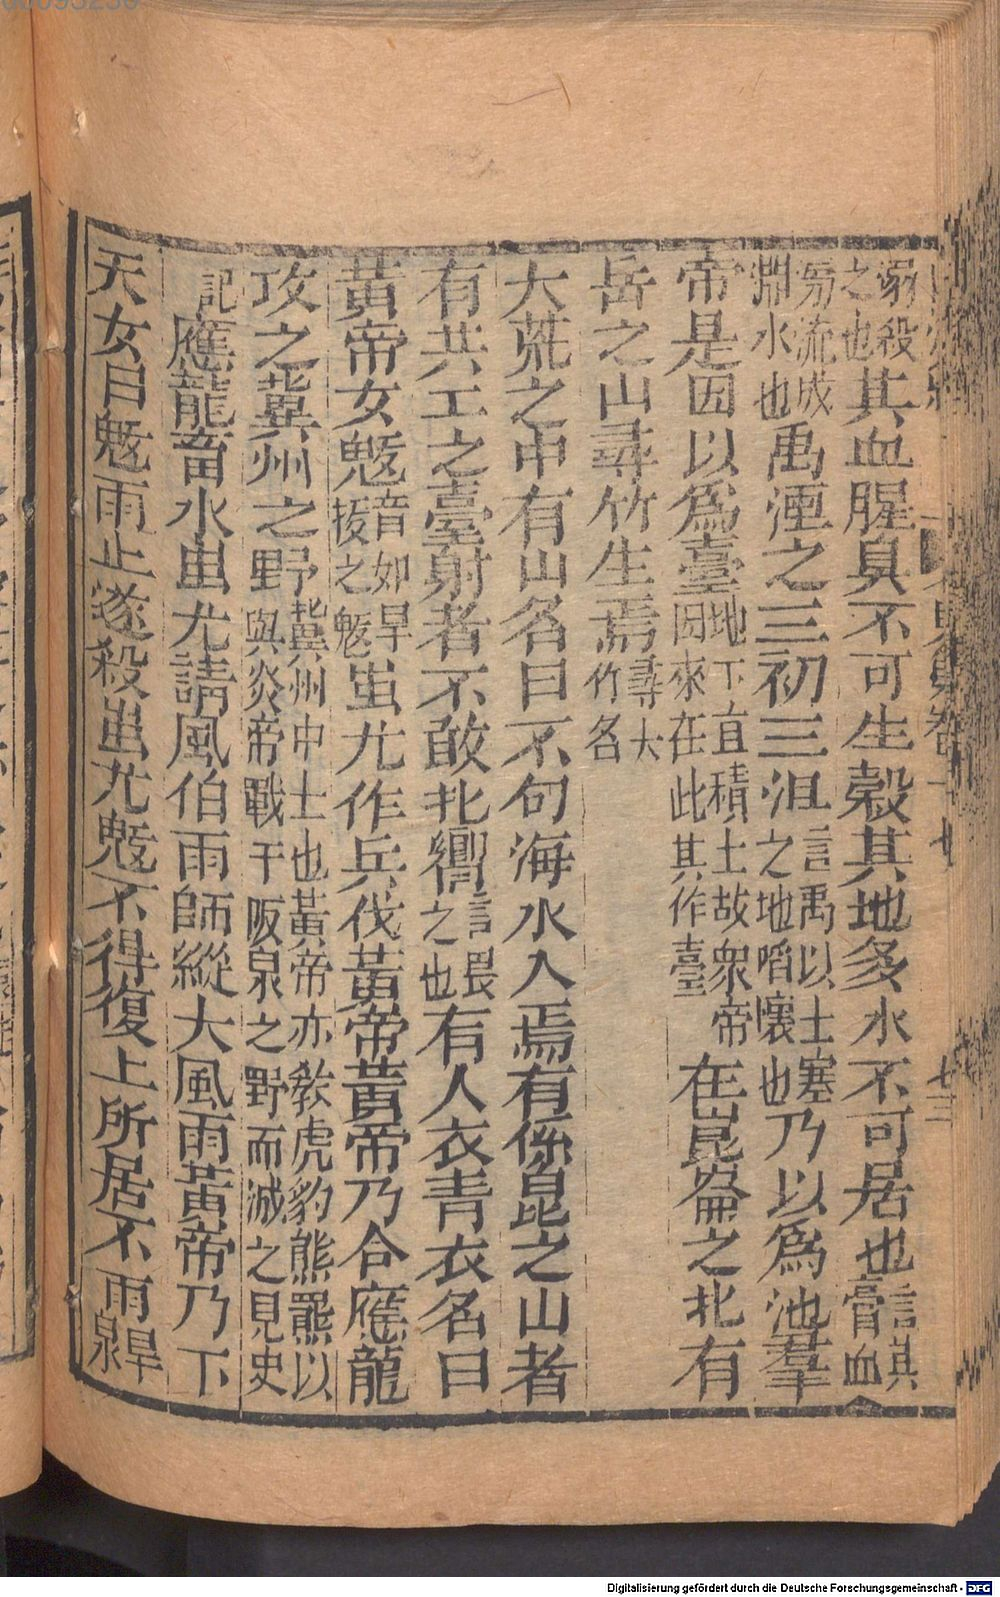 溺殺之也其血腥臭不可生穀其地多水不可居也言其膏血
滂流成淵水也禹湮之三初三沮言禹以土塞之地啗壞也乃以爲池羣
帝是因以爲臺地下宜積土故衆帝因來在此其作臺在崑崙之北有
岳之山尋竹生焉尋大竹名
大荒之中有山名曰不句海水入焉有係昆之山者
有共工之臺射者不敢北嚮言畏之也有人衣青衣名曰
黃帝女魃音如旱妭之魃蚩尤作兵伐黃帝黃帝乃令應龍
攻之冀州之野冀州中土也黃帝亦教虎豹熊羆以與炎帝戰于阪泉之野而滅之見史
記應龍畜水蚩尤請風伯雨師縱大風雨黃帝乃下
天女曰魃雨止遂殺蚩尤魃不得復上所居不雨旱泉
Digitalisierung gefördert durch die Deutsche Forschungsgemeinschaft - DFG